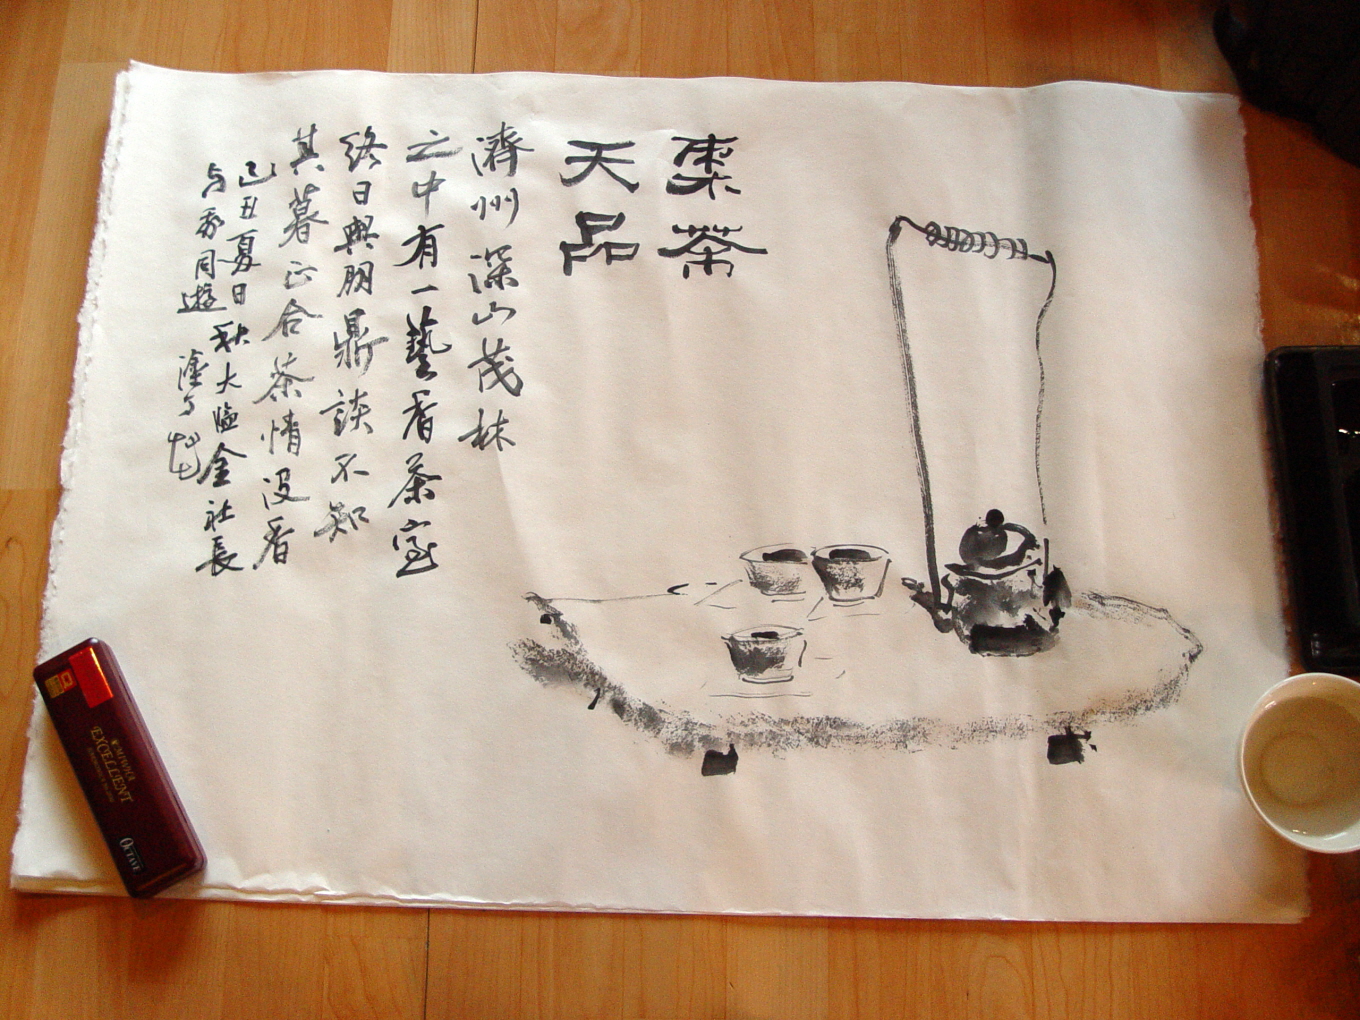 棗茶
天品
濟州深山茂林
之中有一藝香茶室
終日與朋鼎談不知
其暮正合茶情没香
己丑夏日秋大 金社長
与 同遊
EXCELLENT
OCTAVE